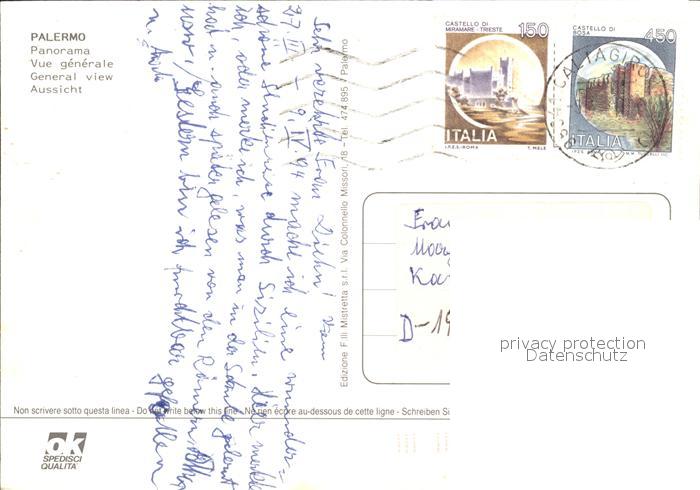 PALERMO
Panorama
Vue générale
General view
Aussicht
CASTELLO DI
MIRAMARE - TRIESTE
150
ITALIA
I.P.Z.S.-ROMA
T. MELE
CASTELLO DI
BOSA
450
ITALIA
Sehr verehrte Frau Diehn! Vom
27. III. - 9. IV. 94 mache ich eine wunder=
schöne Studienreise durch Sizilien. Hier merkt
ich, oder merke ich, was man in der Schule gelernt
hat u. auch später gelesen von den Römern
usw. / Gestern bin ich furchtbar gefallen
u.
Edizione F.lli Mistretta s.r.l. Via Colonnello Missori, 18 - Tel. 474.895 / Palermo
D-19
privacy protection
Datenschutz
Non scrivere sotto questa linea - Do not write below this line - Ne rien écrire au-dessous de cette ligne - Schreiben Si
ok
SPEDISCI
QUALITA'